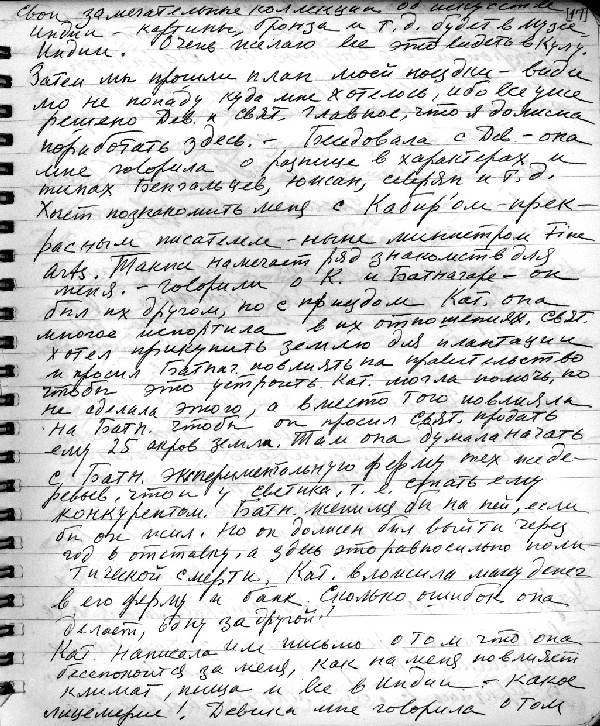 свои замечательные коллекции об искусстве
Индии – картины, бронза и т.д. будет в музее
Индии. Очень желаю все это видеть в Кулу.
Затем мы прошли план моей поездки – види
мо не попаду куда мне хотелось, ибо все уже
решено Дев. и Свят. Главное, что я должна
поработать здесь. – Беседовала с Дев – она
мне говорила о разнице в характерах и
типах Бенгальцев, южан, северян и т.д.
Хочет познакомить меня с Кабир'ом – прек–
расным писателем – ныне министром Fine
arts. Также намечает ряд знакомств для
меня. – Говорили о К. и Батнагаре – он
был их другом, но с приездом Кат. она
многое испортила в их отношениях. Свят.
хотел прикупить землю для плантации
и просил Батнаг. повлиять на правительство
чтобы это устроить. Кат. могла помочь, но
не сделала этого, а вместо того повлияла
на Батн. чтобы он просил Свят. продать
ему 25 акров земли. Там она думала начать
с Батн. экспериментальную ферму тех же де–
ревьев, что и у Светика, т.е. стать ему
конкурентом. Батн. женился бы на ней, если
бы он жил. Но он должен был выйти через
год в отставку, а здесь это равносильно поли
тической смерти. Кат. вложила массу денег
в его ферму и банк. Сколько ошибок она
делает, одну за другой!
Кат написала им письмо о том что она
беспокоится за меня, как на меня повлияет
климат, пища и все в Индии – Какое
лицемерие! Девика мне говорила о том